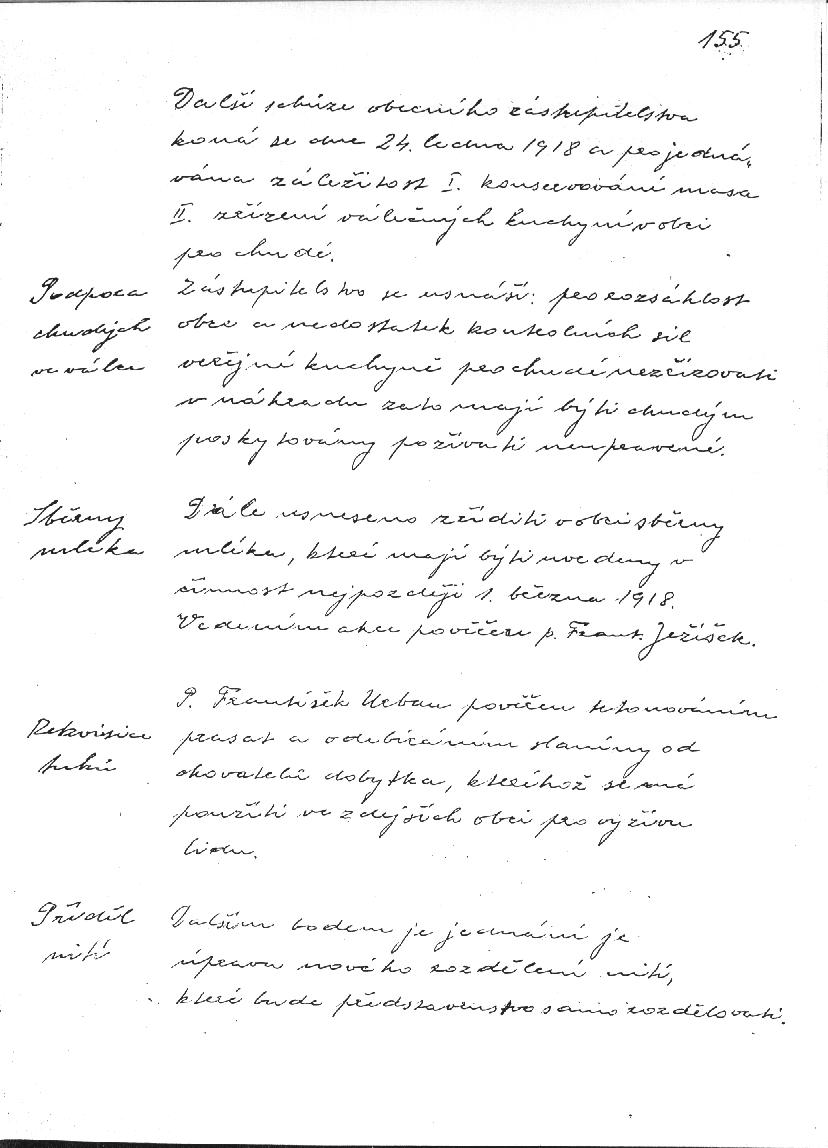 155
Další schůze obecního zastupitelstva
koná se dne 24. ledna 1918 a projedná,,
vána záležitost I. konservování masa
II. zřízení válečných kuchyní v obci
pro chudé.
Podpora
chudých
ve válce
Zastupitelstvo se usnáší: pro rozsáhlost
obce a nedostatek kontrolních sil
veřejné kuchyně pro chudé nezřizovati
v náhradu zato mají býti chudým
poskytovány poživati neupravené.
Sběrny
mléka
Dále usneseno zříditi v obci sběrny
mléka, které mají býti uvedeny v
činnost nejpozději 1. března 1918.
Vedením akce pověřen p. Frant. Ježíšek.
Rekvisice
tuků
P. František Urban pověřen
prasat a odebíráním slaniny od
chovatelů dobytka, kteréhož se má
použíti ve zdejších obci pro výživu
lidu.
Příděl
nití
Dalším bodem je jednání je
úprava nového rozdělení nití,
které bude představenstvo samo rozdělovati.